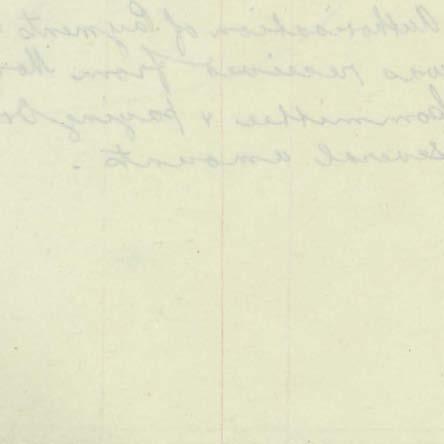 Authorisation of Payments
was received from
Committee & paying
several amounts.